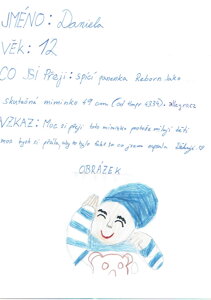 JMÉNO: Daniela
VĚK: 12
CO SI Přeji: spící panenka Reborn jako
skutečné miminko 49 cm (od llorens
VZKAZ: Moc si přeji toto miminko protože miluji děti
moc bych si přála, aby to bylo jako to co jsem napsala Děkuji
OBRÁZEK